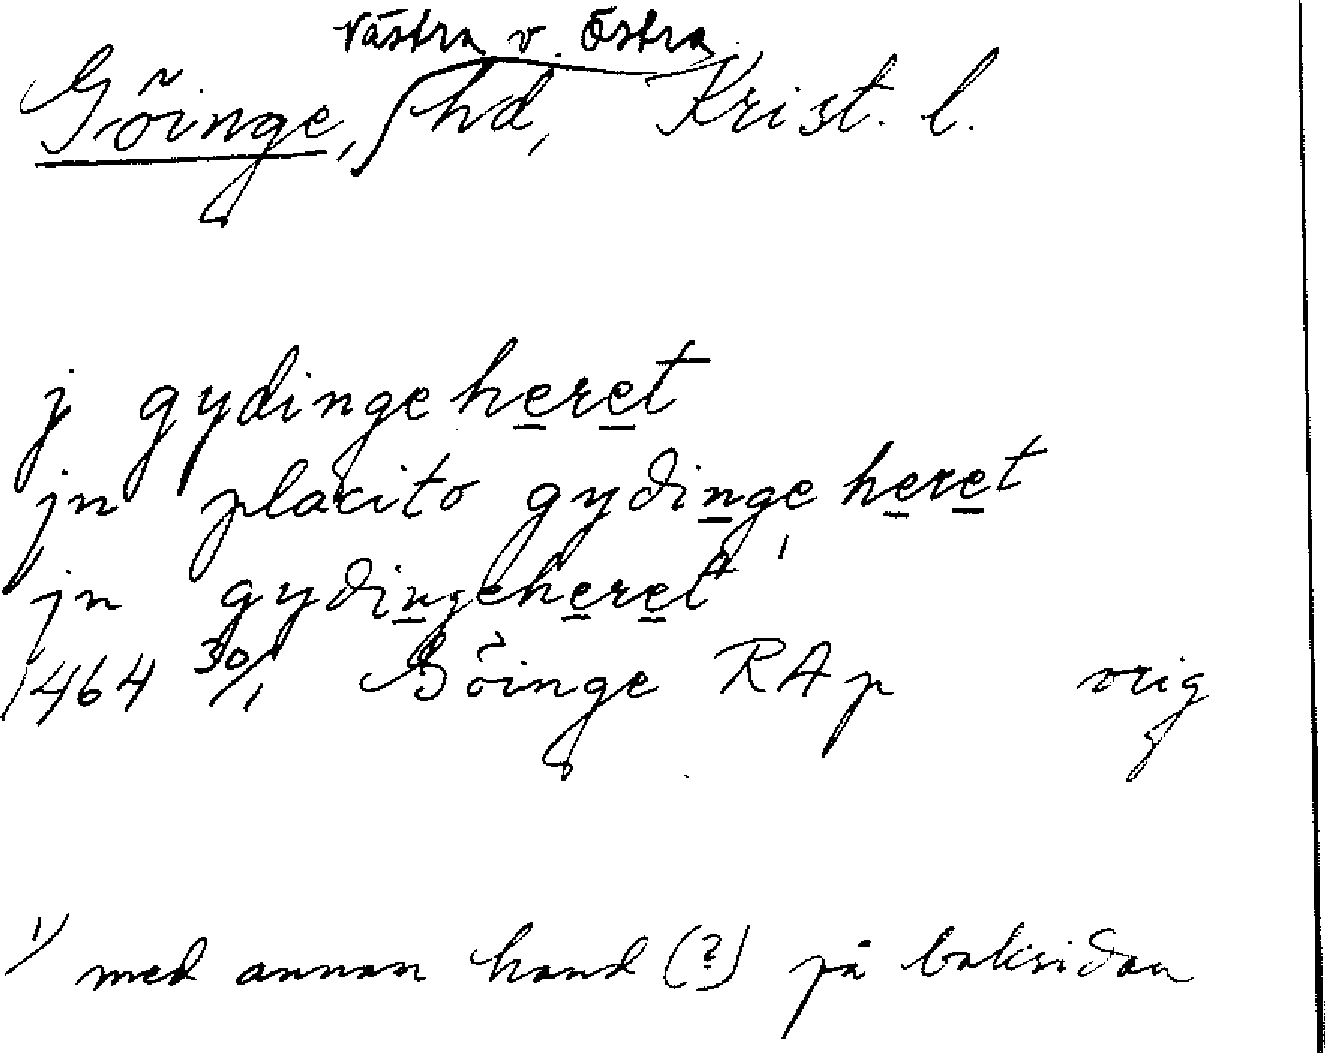 Västra o. Östra
Göinge, hd, Krist. l.
j gydingeheret
jn placito gydinge heret
jn gydingeheret 1
1464 30/1 Göinge RAp orig
1) med annan hand (?) på baksidan